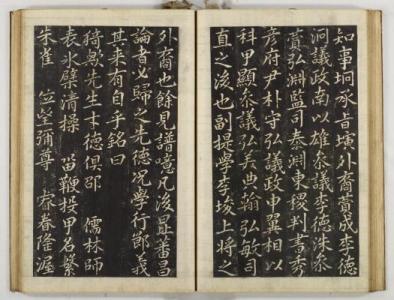 知事垌承旨墳外裔黃成李德
泂議政南以雄參議李德洙參
黃弘淵監司泰淵東稷判書秀
彦府尹朴守弘議政申翼相以
科甲顯參議弘美典翰弘敏司
直之後也副提學李埈上將之
外裔也餘見譜意凡後昆蕃昌
論者必歸之先德况學行節義
其來有自乎銘曰
猗歟先生才德俱卲 儒林師
表氷檗清操 笛鞭投甲名繫
朱雀 笠 彌尊 春眷隆渥